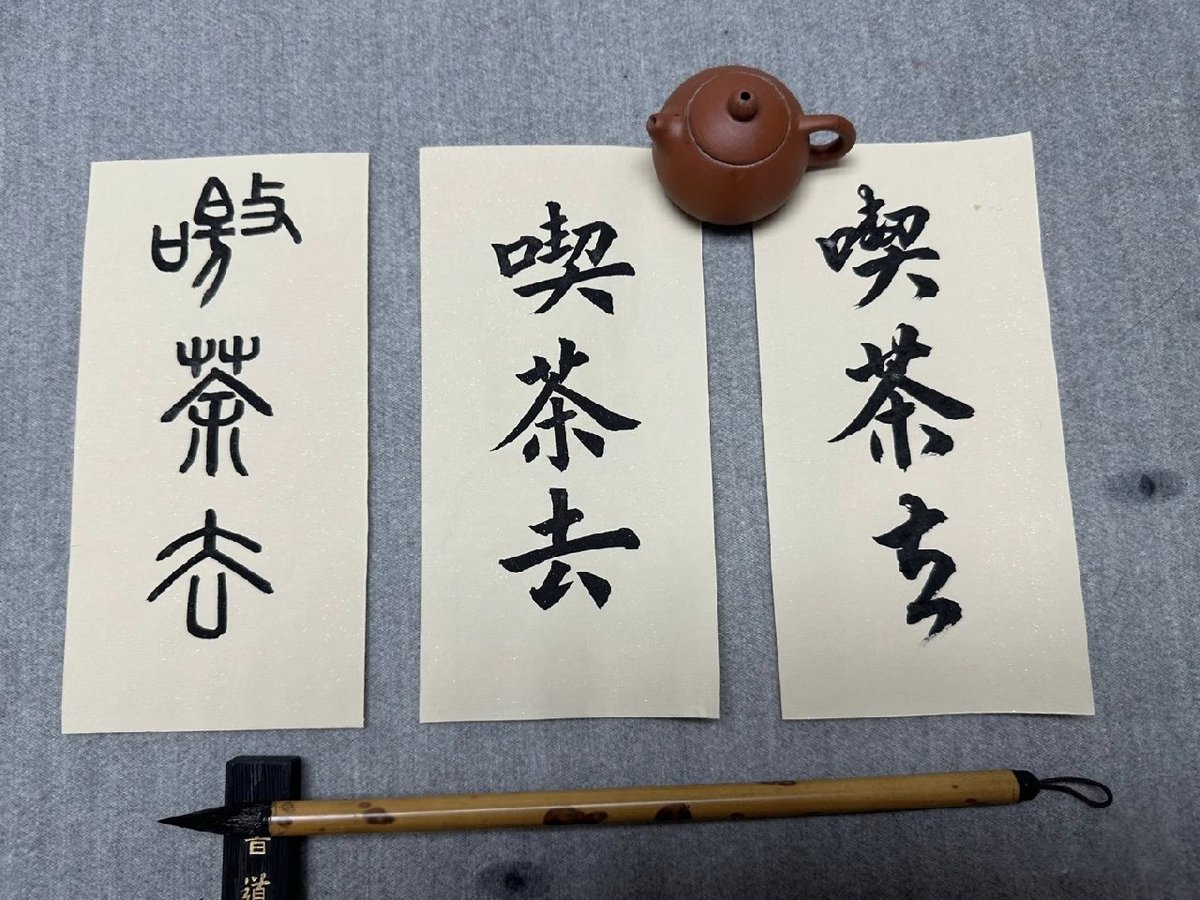 喫茶去
喫茶去
茶去
道